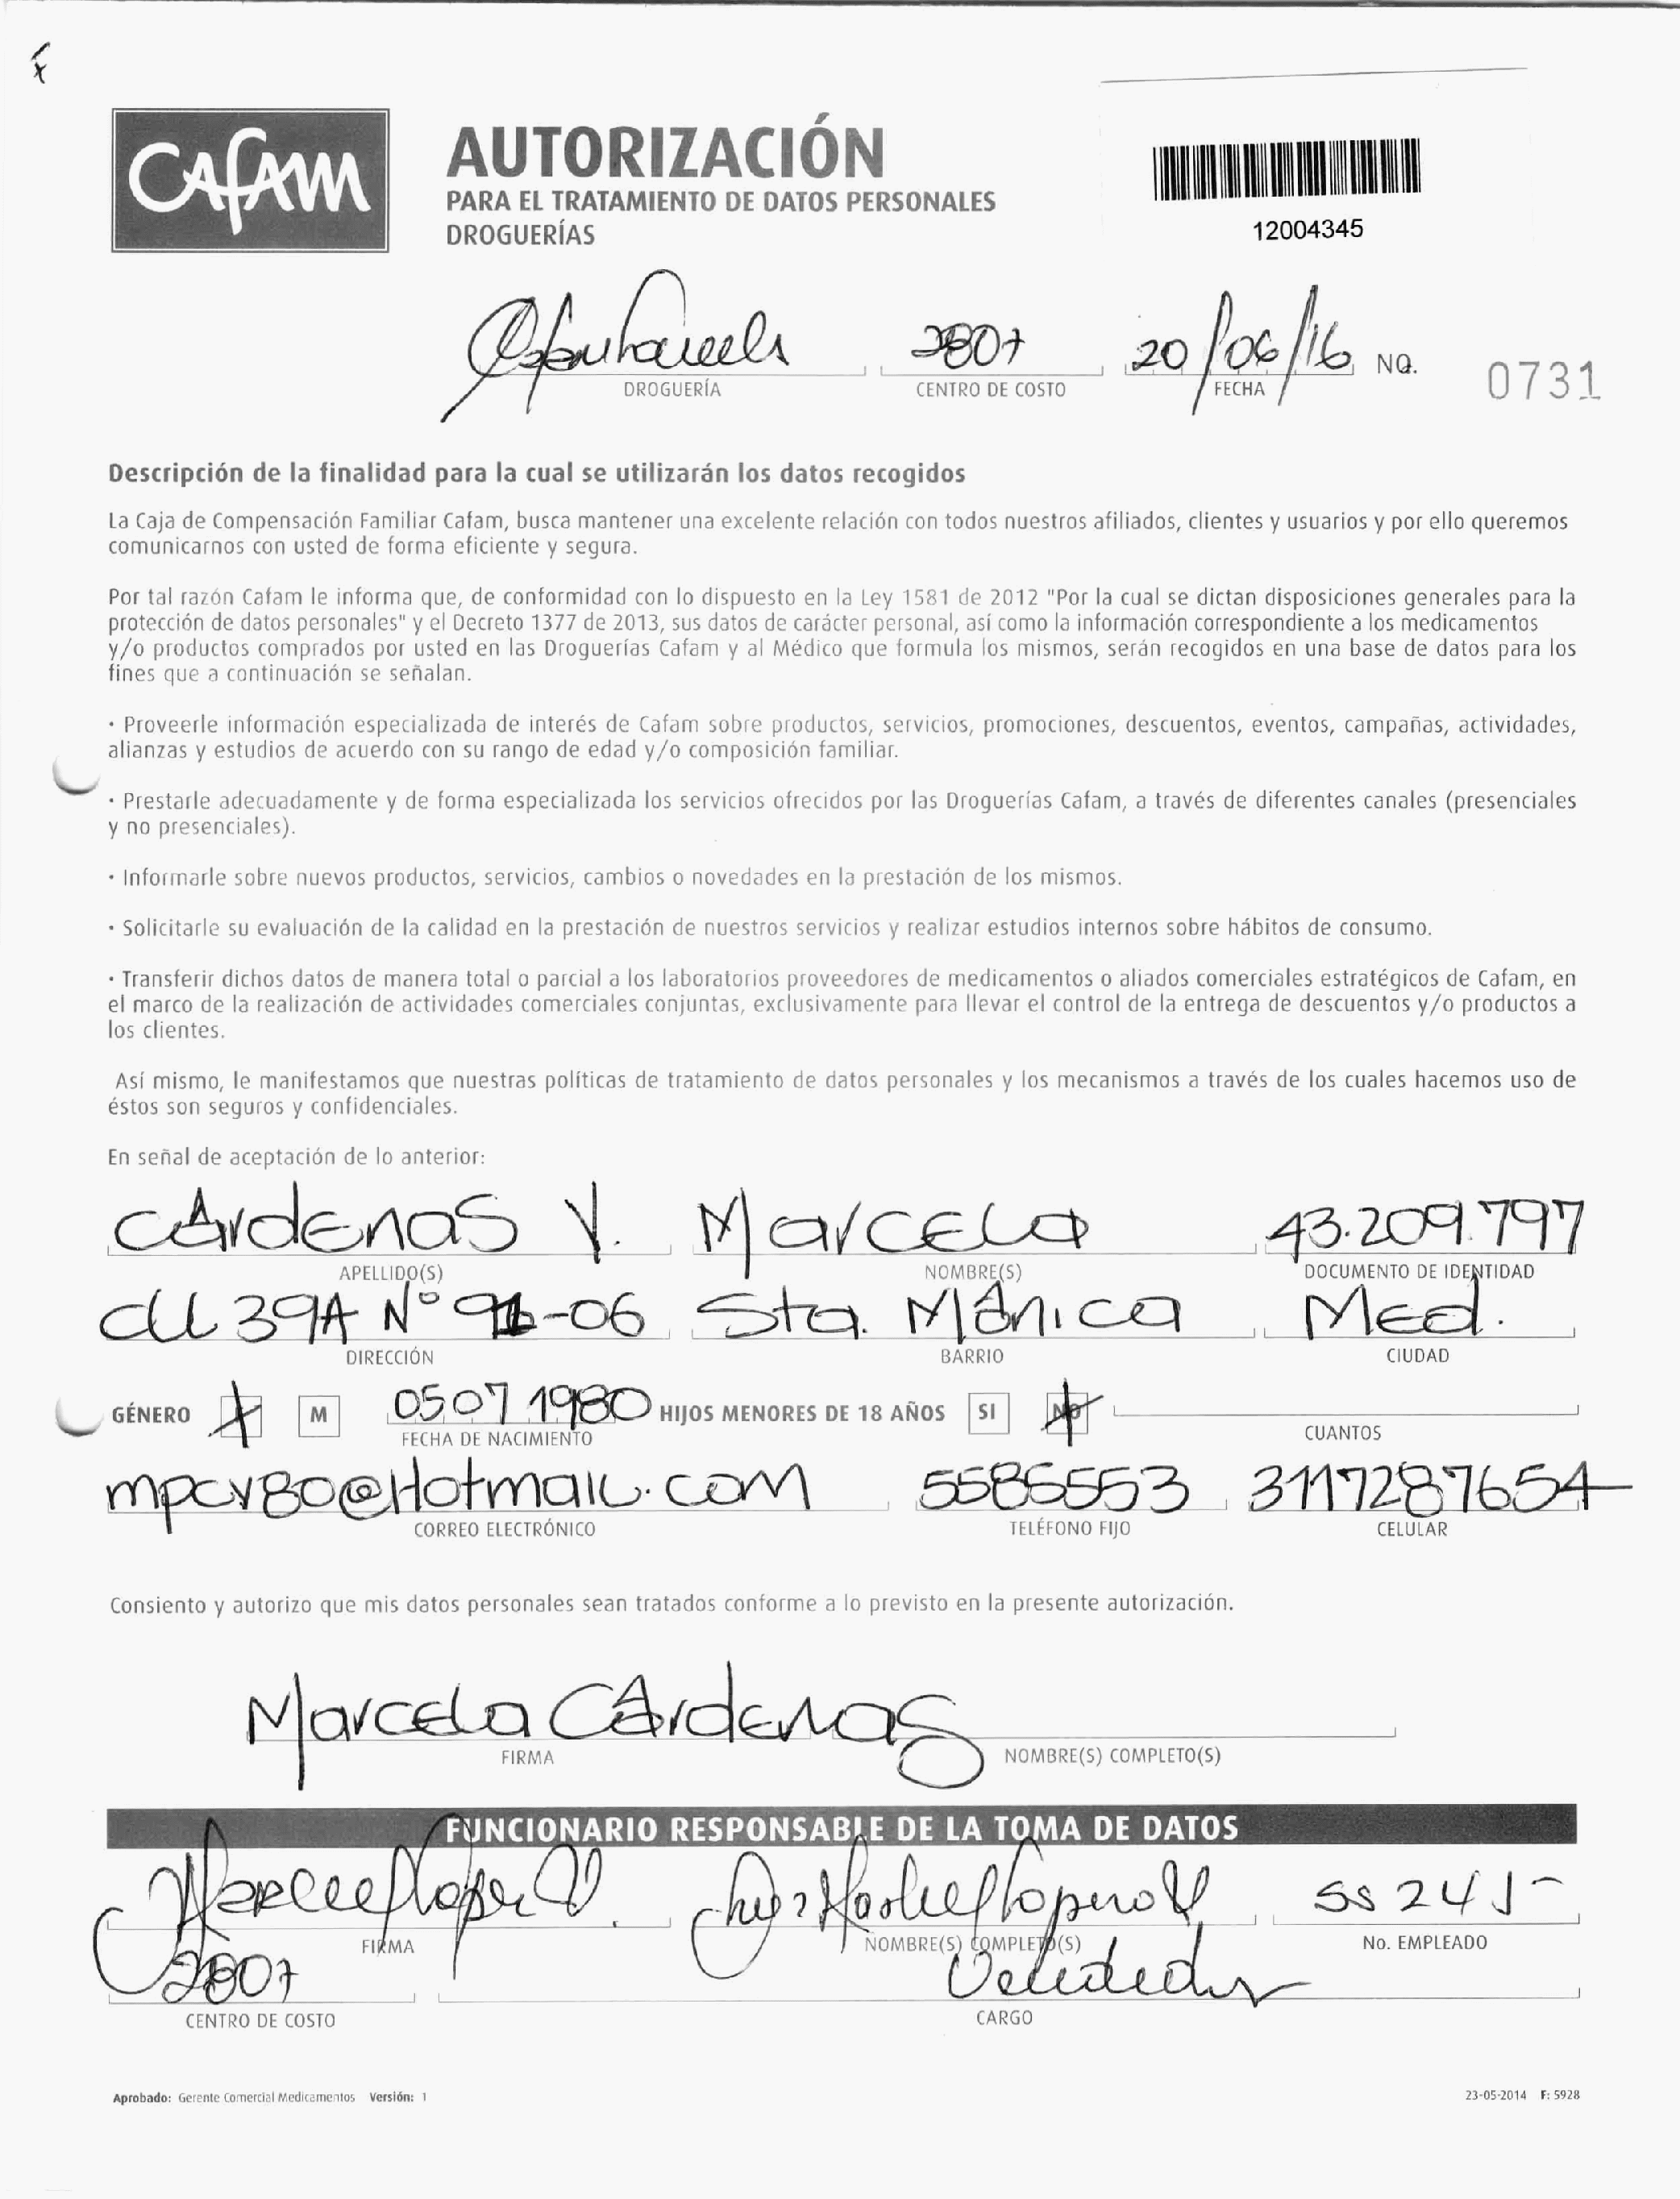 CAFAM
AUTORIZACIÓN
PARA EL TRATAMIENTO DE DATOS PERSONALES
DROGUERÍAS
12004345
2807 20/06/16 NO. 0731
DROGUERÍA CENTRO DE COSTO FECHA
Descripción de la finalidad para la cual se utilizarán los datos recogidos
La Caja de Compensación Familiar Cafam, busca mantener una excelente relación con todos nuestros afiliados, clientes y usuarios y por ello queremos
comunicarnos con usted de forma eficiente y segura.
Por tal razón Cafam le informa que, de conformidad con lo dispuesto en la Ley 1581 de 2012 "Por la cual se dictan disposiciones generales para la
protección de datos personales" y el Decreto 1377 de 2013, sus datos de carácter personal, así como la información correspondiente a los medicamentos
y/o productos comprados por usted en las Droguerías Cafam y al Médico que formula los mismos, serán recogidos en una base de datos para los
fines que a continuación se señalan.
· Proveerle información especializada de interés de Cafam sobre productos, servicios, promociones, descuentos, eventos, campañas, actividades,
alianzas y estudios de acuerdo con su rango de edad y/o composición familiar.
· Prestarle adecuadamente y de forma especializada los servicios ofrecidos por las Droguerías Cafam, a través de diferentes canales (presenciales
y no presenciales).
· Informarle sobre nuevos productos, servicios, cambios o novedades en la prestación de los mismos.
· Solicitarle su evaluación de la calidad en la prestación de nuestros servicios y realizar estudios internos sobre hábitos de consumo.
· Transferir dichos datos de manera total o parcial a los laboratorios proveedores de medicamentos o aliados comerciales estratégicos de Cafam, en
el marco de la realización de actividades comerciales conjuntas, exclusivamente para llevar el control de la entrega de descuentos y/o productos a
los clientes.
Así mismo, le manifestamos que nuestras políticas de tratamiento de datos personales y los mecanismos a través de los cuales hacemos uso de
éstos son seguros y confidenciales.
En señal de aceptación de lo anterior:
Cárdenas V. Marcela 43.209.797
APELLIDO(S) NOMBRE(S) DOCUMENTO DE IDENTIDAD
Cll 39A N° -06 Sta. Mónica Med.
DIRECCIÓN BARRIO CIUDAD
GÉNERO M 05 07 1980 HIJOS MENORES DE 18 AÑOS SI NO
FECHA DE NACIMIENTO CUANTOS
mpcv80@Hotmail.com 5585553 3117287654
CORREO ELECTRÓNICO TELÉFONO FIJO CELULAR
Consiento y autorizo que mis datos personales sean tratados conforme a lo previsto en la presente autorización.
Marcela Cárdenas
FIRMA NOMBRE(S) COMPLETO(S)
FUNCIONARIO RESPONSABLE DE LA TOMA DE DATOS
FIRMA NOMBRE(S) COMPLETO(S) No. EMPLEADO
2807
CENTRO DE COSTO CARGO
Aprobado: Gerente Comercial Medicamentos Versión: 1 23-05-2014 F: 5928